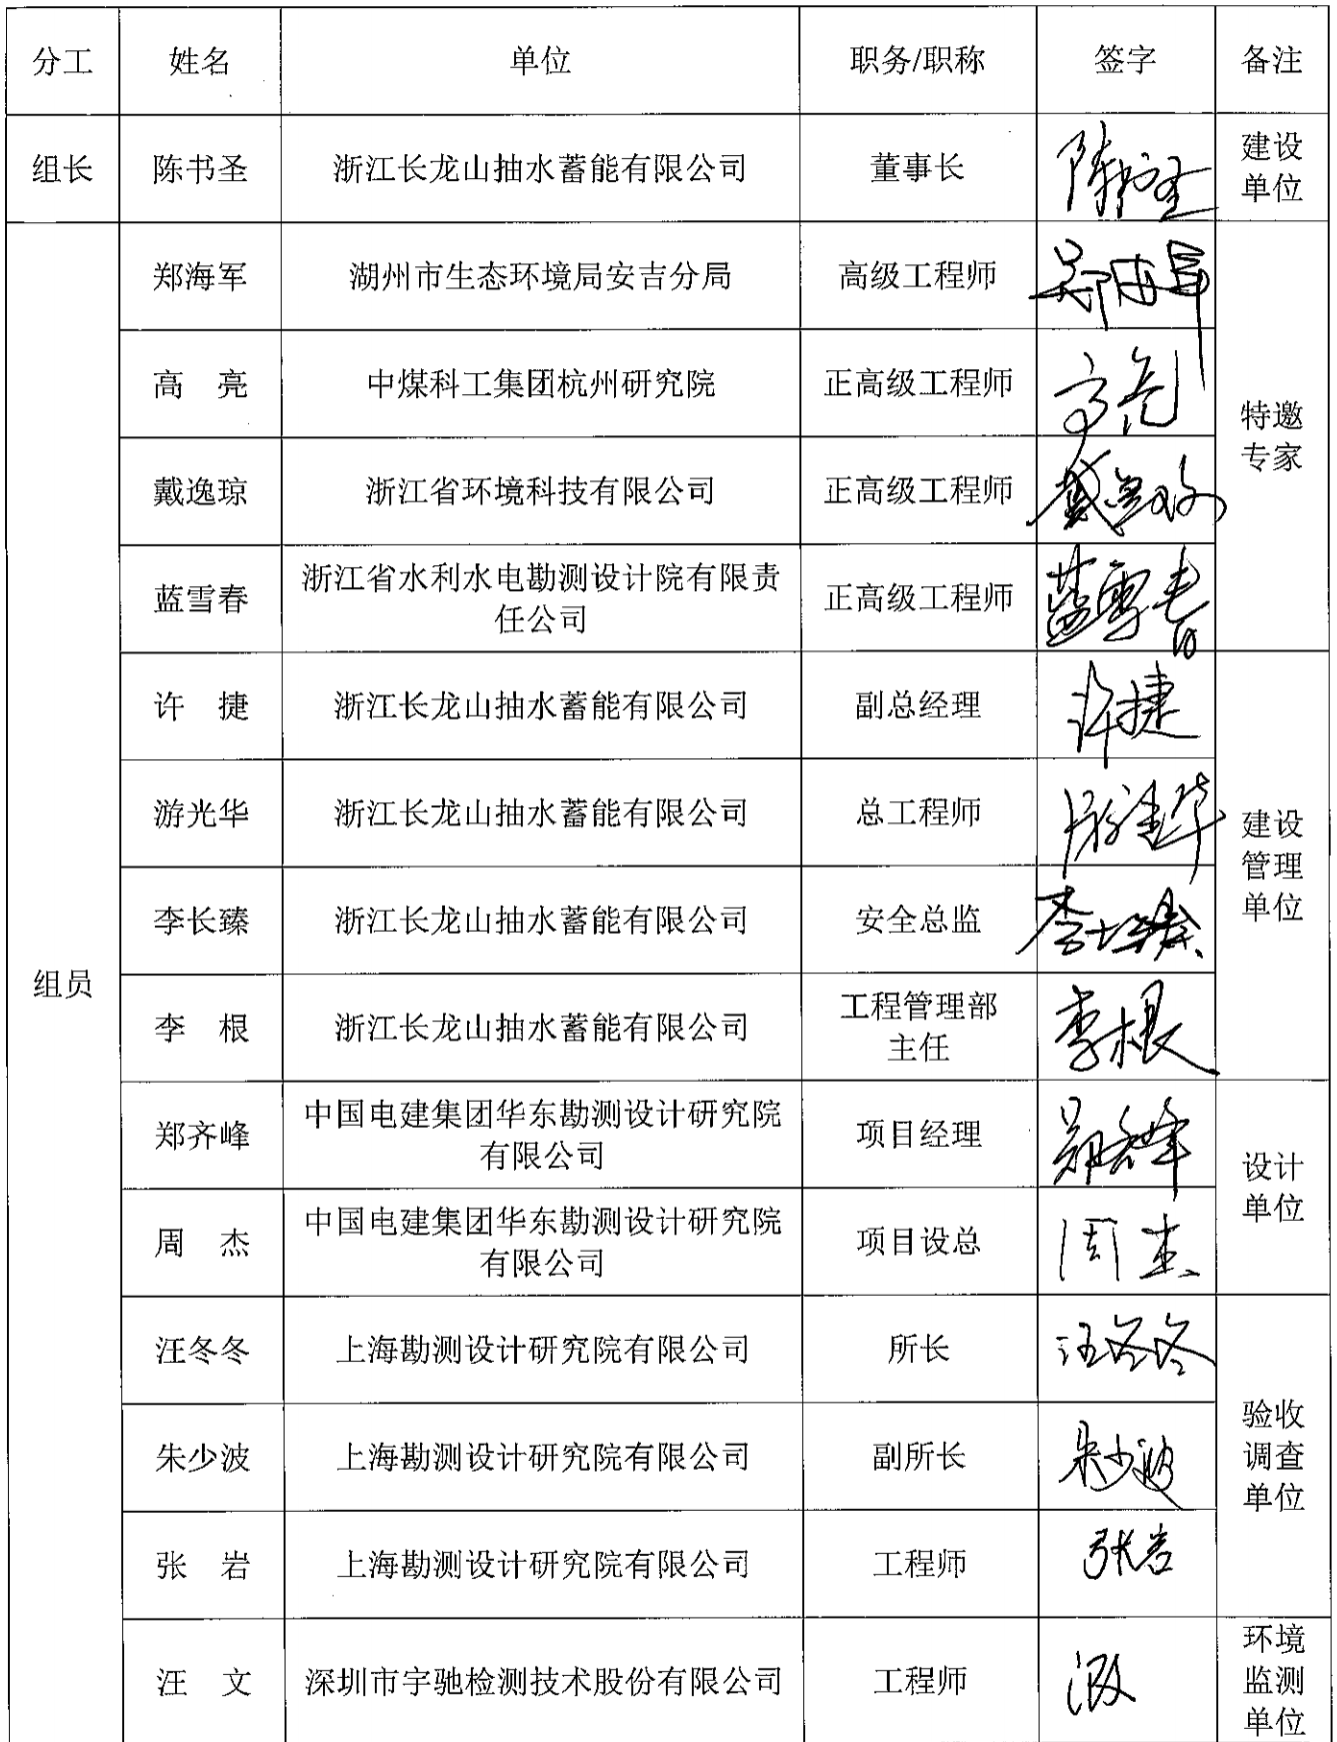 分工 姓名 单位 职务/职称 签字 备注
组长 陈书圣 浙江长龙山抽水蓄能有限公司 董事长 陈书圣 建设
单位
组员
郑海军 湖州市生态环境局安吉分局 高级工程师 郑海军
特邀
专家
高 亮 中煤科工集团杭州研究院 正高级工程师 高亮
戴逸琼 浙江省环境科技有限公司 正高级工程师 戴逸琼
蓝雪春 浙江省水利水电勘测设计院有限责
任公司 正高级工程师 蓝雪春
许 捷 浙江长龙山抽水蓄能有限公司 副总经理 许捷
建设
管理
单位
游光华 浙江长龙山抽水蓄能有限公司 总工程师 游光华
李长臻 浙江长龙山抽水蓄能有限公司 安全总监 李长臻
李 根 浙江长龙山抽水蓄能有限公司 工程管理部
主任 李根
郑齐峰 中国电建集团华东勘测设计研究院
有限公司 项目经理 郑齐峰
设计
单位
周 杰 中国电建集团华东勘测设计研究院
有限公司 项目设总 周杰
汪冬冬 上海勘测设计研究院有限公司 所长 汪冬冬
验收
调查
单位
朱少波 上海勘测设计研究院有限公司 副所长 朱少波
张 岩 上海勘测设计研究院有限公司 工程师 张岩
汪 文 深圳市宇驰检测技术股份有限公司 工程师 汪文
环境
监测
单位